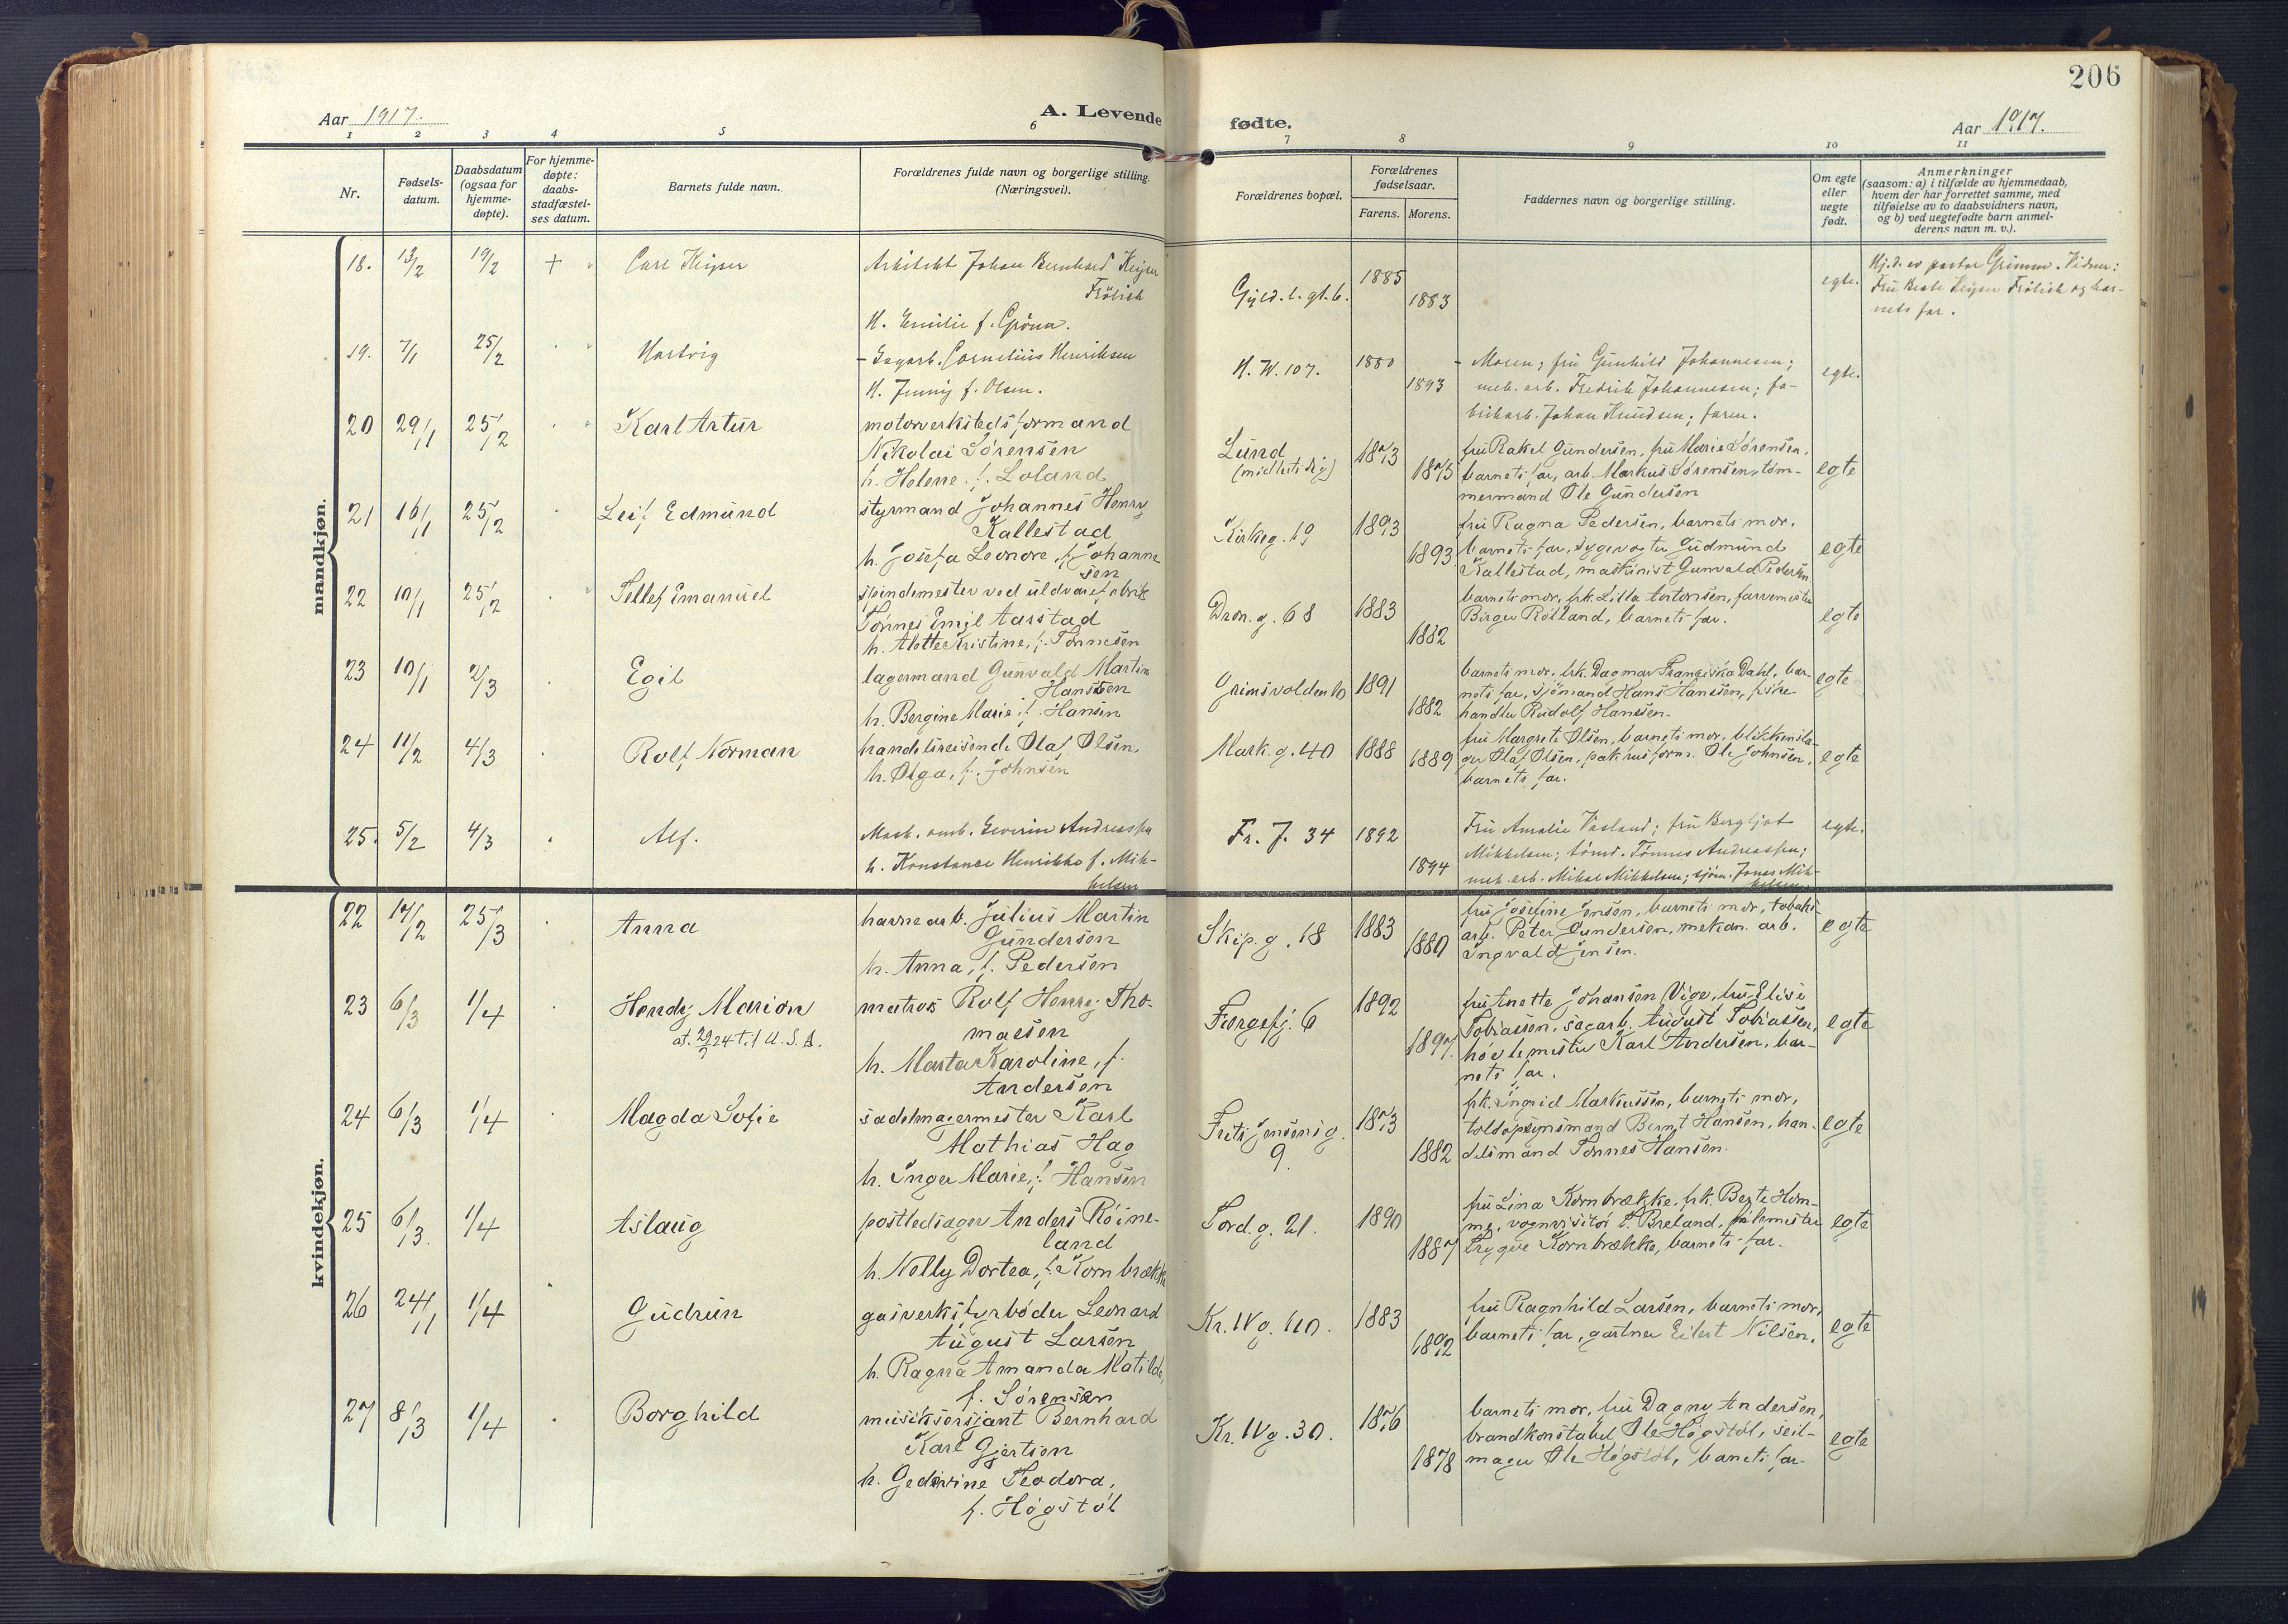 206
Aar 1917.
A. Levende
fødte.
Aar 1917.
1 2 3 4 5 6 7 8 9 10 11
Nr.
Fødsels-
datum.
Daabsdatum
(ogsaa for
hjemme-
døpte).
For hjemme-
døpte:
daabs-
stadfæstel-
ses datum.
Barnets fulde navn.
Forældrenes fulde navn og borgerlige stilling.
(Næringsvei).
Forældrenes bopæl.
Forældrenes
fødselsaar.
Farens. Morens.
Faddernes navn og borgerlige stilling.
Om egte
eller
uegte
født.
Anmerkninger
(saasom: a) i tilfælde av hjemmedaab,
hvem der har forrettet samme, med
tilføielse av to daabsvidners navn,
og b) ved uegtefødte barn anmel-
derens navn m. v.).
mandkjøn.
18. 13/2 19/2 + Carl Keyser
Arkitekt Johan Bernhard Keyser
Frölich
H. Emilie f. Gröna.
Gyld.l.gt.6. 1885 1883
egte.
Hj.d. av pastor Grimm. Vidner:
Fru Beate Keyser Frölich og bar-
nets far.
19. 7/1 25/2 Hartvig
- Sagarb. Cornelius Henriksen
H. Jenny f. Olsen.
H. W. 107. 1880 1893
- Moren; fru Gunhild Johannesen;
mek. arb. Fredrik Johannesen; fa-
brikarb. Johan Knudsen; faren.
egte.
20 29/1 25/2 Karl Artur
motorverkstedsformand
Nikolai Sørensen
h. Helene f. Loland
Lund
(midlertidig) 1873 1875
fru Rakel Gundersen, fru Marie Sørensen,
barnets far, arb. Markus Sørensen, tøm-
mermand Ole Gundersen
egte
21 16/1 25/2 Leif Edmund
styrmand Johannes Henry
Kallestad
h. Josefa Leonore f. Johanne-
sen
Kirkeg. 19 1893 1893
fru Ragna Pedersen, barnets mor,
barnets far, sygevogter Gudmund
Kallestad, maskinist Gunvald Pedersen
egte
22 10/1 25/2 Tellef Emanuel
spindemester ved uldvarefabrik
Tønnes Emil Aarstad
h. Alette Kristine, f. Tønnesen
Dron.g. 68 1883 1882
barnets mor, frk. Lilla Antonsen, farvemester
Birger Rolland, barnets far.
egte
23 10/1 2/3 Egil
lagermand Gunvald Martin
Hanssen
h. Bergine Marie f. Hansen
Grimsvolden 10 1891 1882
barnets mor, frk. Dagmar Franziska Dahl, bar-
nets far, sjömand Hans Hanssen, fiske-
handler Rudolf Hanssen.
egte
24 11/2 4/3 Rolf Norman
handelsreisende Olaf Olsen,
h. Olga, f. Johnsen
Mark.g. 40 1888 1889
fru Margrete Olsen, barnets mor, blikkensla-
ger Olaf Olsen, pakhusform. Ole Johnsen,
barnets far.
egte
25. 5/2 4/3 Alf.
Mask. arb. Severin Andreassen
h. Konstanse Henrikke f. Mik-
kelsen
Fr. J. 34 1892 1894
Fru Amalie Vasland; fru Bergljot
Mikkelsen; tömr. Tønnes Andreassen;
mek. arb. Mikal Mikkelsen; sjöm. Jonas Mik-
kelsen
egte.
kvindekjøn.
22 17/2 25/3 Anna
havnearb. Julius Martin
Gundersen
h. Anna, f. Pedersen
Skip.g. 18 1883 1880
fru Josefine Jensen, barnets mor, tobaks-
arb. Peter Gundersen, mekan. arb.
Ingvald Jensen.
egte
23 6/3 1/4 Hendy Marion
at. 29/9 24 t.f U.S.A.
matros Rolf Henry Tho-
massen
h. Marta Karoline, f.
Andersen
Færgefj. 6 1892 1897.
fru Anette Johansen Vige, fru Elise
Tobiassen, sagarb. August Tobiassen,
høvlemester Karl Andersen, bar-
nets far.
egte
24 6/3 1/4 Magda Sofie
sadelmagermester Karl
Mathias Hag
h. Inger Marie, f. Hansen
Frits Jensens g.
9. 1873 1882
frk. Ingrid Markussen, barnets mor,
toldopsynsmand Bernt Hansen, han-
delsmand Tønnes Hansen.
egte
25 6/3. 1/4 Aslaug
postledsager Anders Röine-
land
h. Nelly Dortea, f. Kornbrække
Tord.g. 21. 1890 1887
fru Lina Kornbrække, frk. Berte Hom-
me, vognvisitør T. Breland, filemester
Trygve Kornbrække, barnets far.
egte
26 24/1 1/4 Gudrun
gasverksfyrbøder Leonard
August Larsen
h. Ragna Amanda Matilde,
f. Sørensen
Kr. IVg. 110. 1883 1892
fru Ragnhild Larsen, barnets mor,
barnets far, gartner Eilert Nilsen.
egte
27 8/3 1/4 Borghild
musiksersjant Bernhard
Karl Gjertsen
h. Gedervine Teodora,
f. Høgstøl
Kr. IVg. 30. 1876 1878
barnets mor, fru Dagny Andersen,
brandkonstabel Ole Høgstøl, seil-
mager Ole Høgstøl, barnets far.
egte